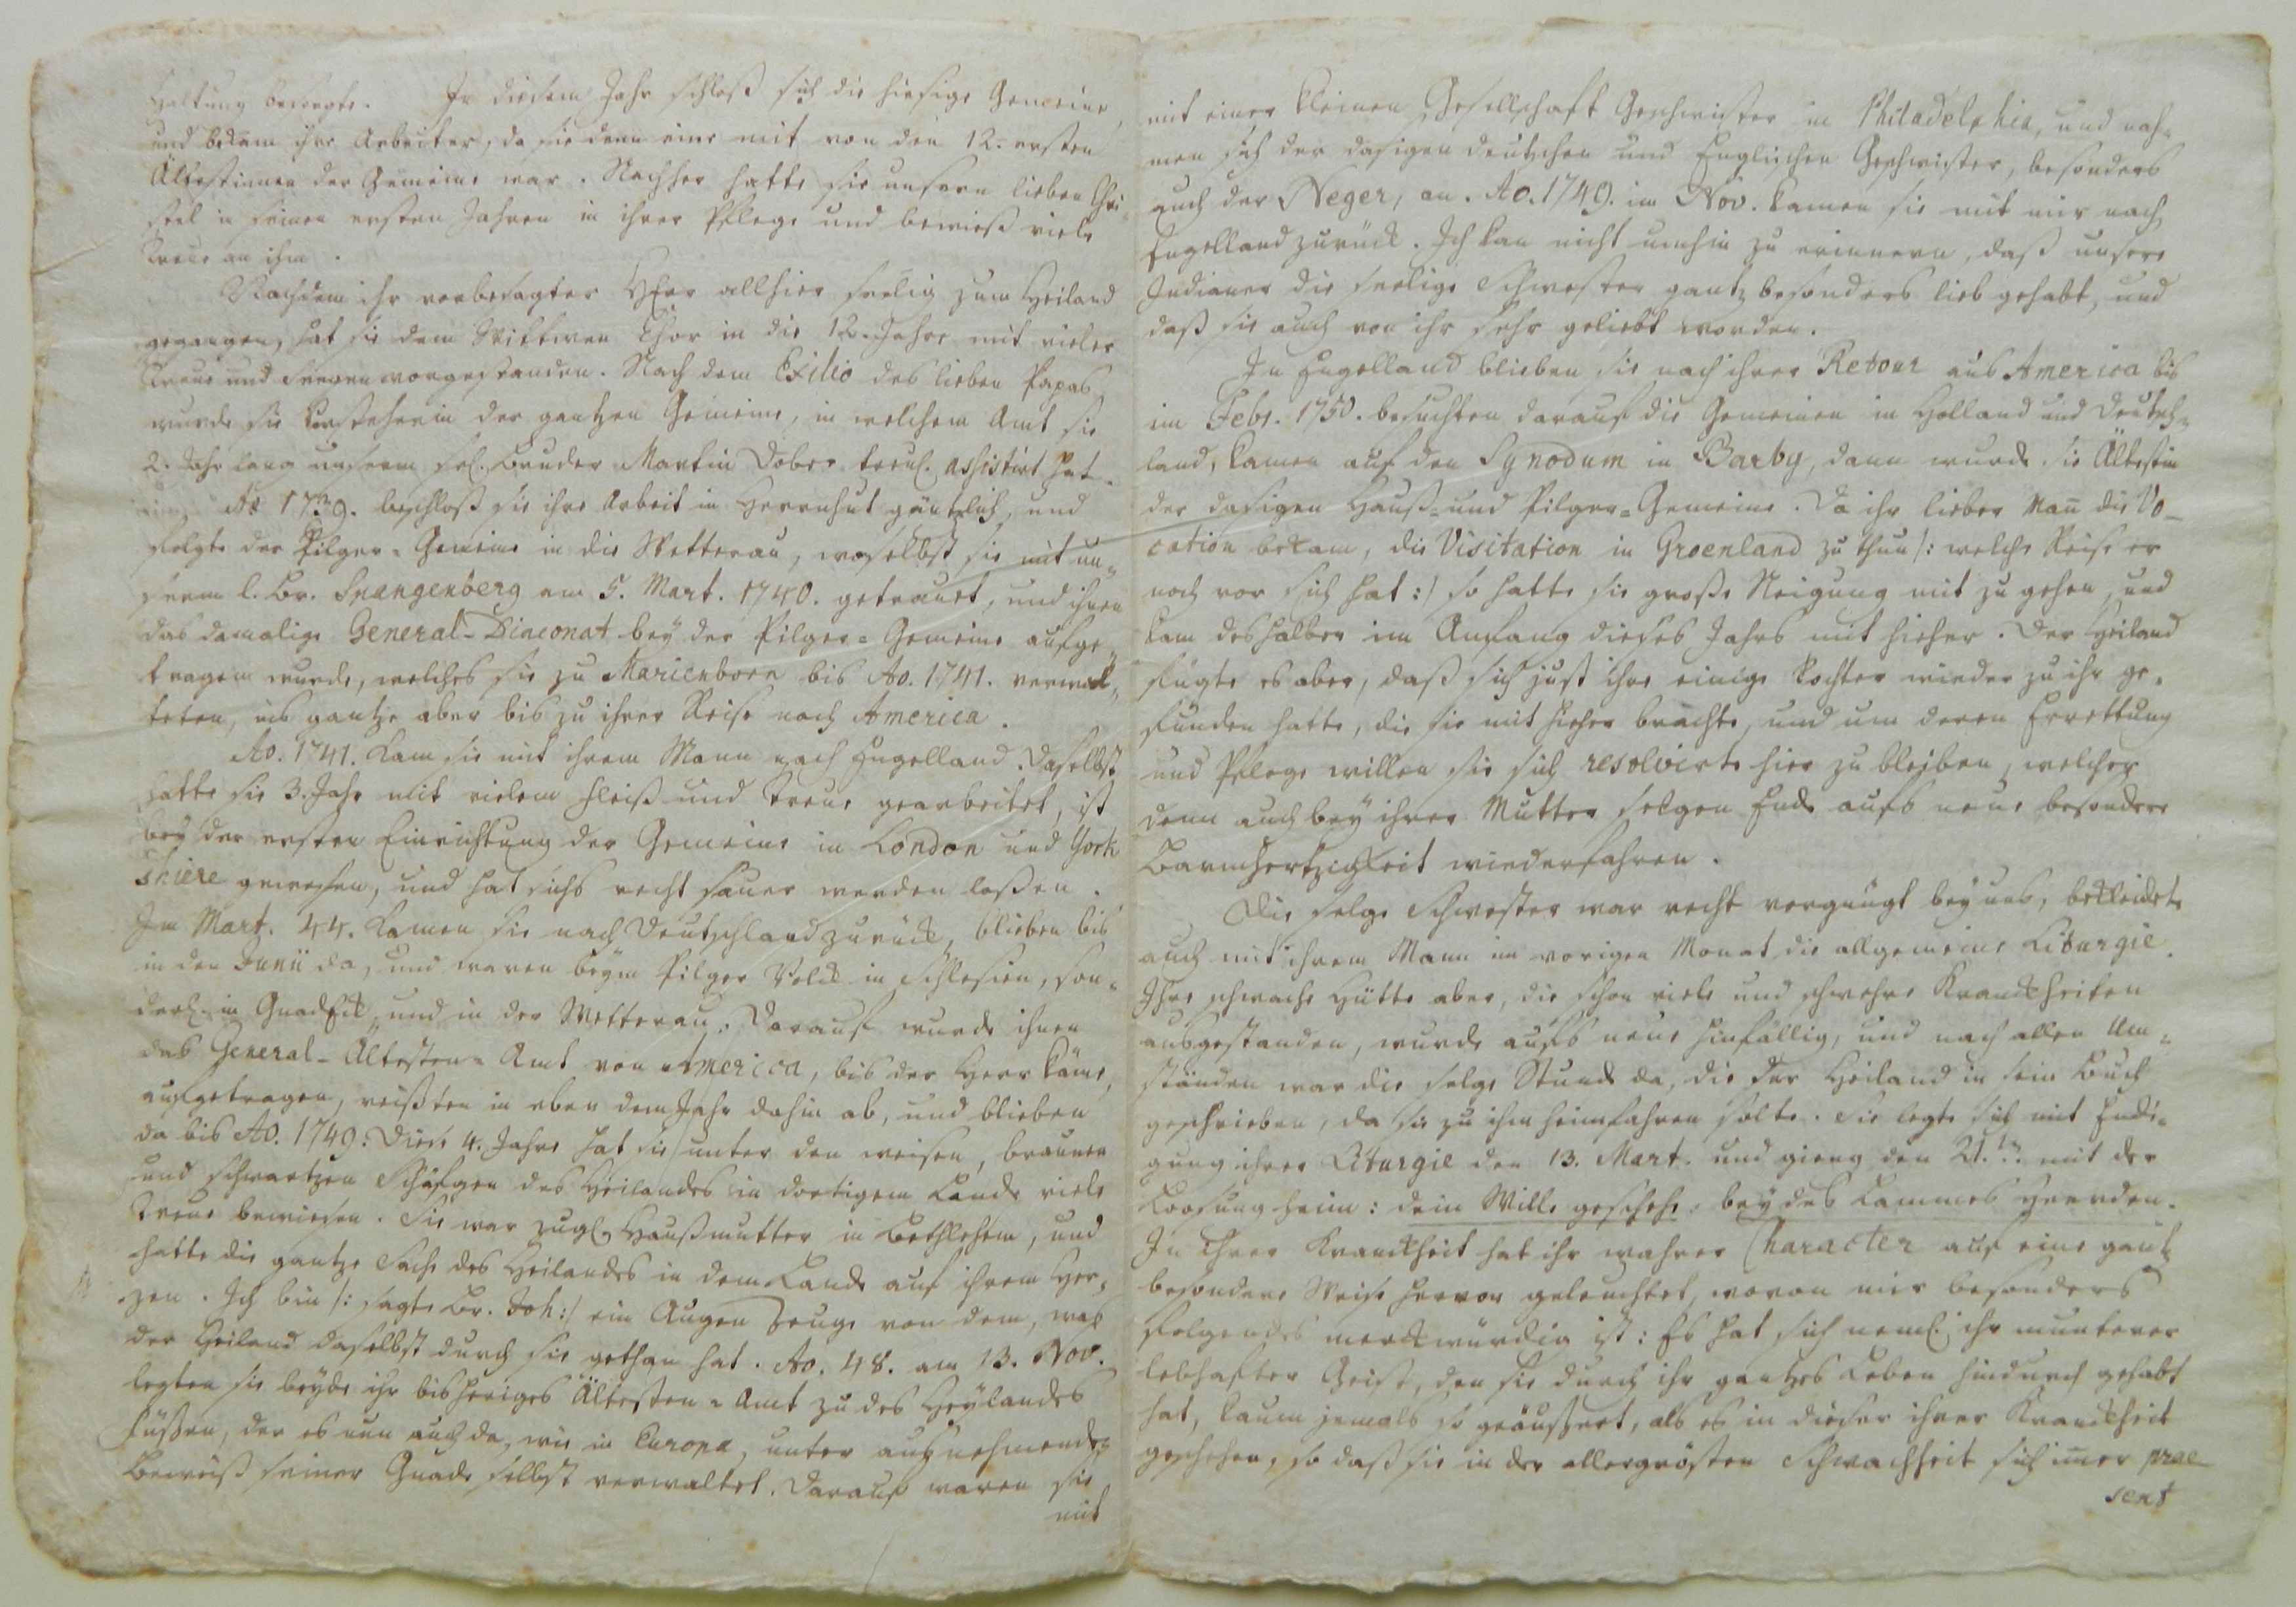 Haltung besorgte. In diesem Jahr schloß sich die hiesige Gemeine,
und bekam ihre Arbeiter, da sie denn eine mit von den 12. ersten
Ältestinnen der Gemeine war. Nachher hatte sie unsern lieben Chri-
stel in seinen ersten Jahren in ihrer Pflege und bewieß viele
Treue an ihm.
Nachdem ihr vorbesagter Herr allhier seelig zum Heiland
gegangen, hat sie dem Wittwen Chor in die 12. Jahre mit vieler
Treue und Seegen vorgestanden. Nach dem Exilio des lieben Papas
wurde sie Vorsteherin der gantzen Gemeine, in welchem Amt sie
2. Jahr lang unserm sel. Bruder Martin Dober treul. assistirt hat.
Ao 1739. beschloß sie ihre Arbeit in Herrnhut gäntzlich, und
folgte der Pilger-Gemeine in die Wetterau, woselbst sie mit un-
serm l. Br. Spangenberg am 5. Mart. 1740. getrauet, und ihnen
das damalige General-Diaconat bey der Pilger-Gemeine aufge-
tragen wurde, welches sie zu Marienborn bis Ao. 1741. verwal-
teten, ins gantze aber bis zu ihrer Reise nach America.
Ao. 1741. kam sie mit ihrem Mann nach Engelland. Daselbst
hatte sie 3. Jahr mit vielem Fleiß und Treue gearbeitet, ist
bey der ersten Einrichtung der Gemeine in London und York
shiere gewesen, und hat sichs recht sauer werden laßen.
Im Mart. 44. kamen sie nach Deutschland zurück, blieben bis
in den Junii da, und waren beym Pilger Volck in Schlesien, son-
derl. in Gnadfrk, und in der Wetterau. Darauf wurde ihnen
das General-Ältesten-Amt von America, bis der Herr käme,
aufgetragen, reißten in eben dem Jahr dahin ab, und blieben
da bis Ao. 1749. Diese 4. Jahre hat sie unter den weisen, braunen
und schwartzen Schäfgen des Heilandes in dortigem Lande viele
Treue bewiesen. Sie war zugl. Haußmutter in Bethlehem, und
hatte die gantze Sache des Heilandes in dem Lande auf ihrem Her-
zen. Ich bin /: sagte Br. Joh :/ ein Augen Zeuge von dem, was
der Heiland daselbst durch sie gethan hat. Ao. 48. am 13. Nov.
legten sie beyde ihr bisheriges Ältesten-Amt zu des Heylandes
Füßen, der es nun auch da, wie in Europa, unter ausnehmenden
Beweiß seiner Gnade selbst verwaltet. Darauf waren sie
mit
mit einer kleinen Gesellschaft Geschwister in Philadelphia, und nah-
men sich der dasigen deutschen und Englischen Geschwister, besonders
auch der Neger, an. Ao. 1749. im Nov. kamen sie mit mir nach
Engelland zurück. Ich kan nicht umhin zu erinnern, daß unsere
Indianer die seelige Schwester gantz besonders lieb gehabt, und
daß sie auch von ihr sehr geliebt worden.
In Engelland blieben sie nach ihrer Retour aus America bis
im Febr. 1750. besuchten darauf die Gemeinen in Holland und Deutsch-
land, kamen auf den Synodum in Barby, dann wurde sie Ältestin
der dasigen Hauß- und Pilger-Gemeine. Da ihr lieber Mañ die Vo-
cation bekam, die Visitation in Groenland zu thun /: welche Reise er
noch vor sich hat :/ so hatte sie große Neigung mit zu gehen, und
kam deshalber im Anfang dieses Jahrs mit hieher. Der Heiland
fügte es aber, daß sich just ihre einige Tochter wieder zu ihr ge-
funden hatte, die sie mit hieher brachte, und um deren Errettung
und Pflege willen sie sich resolvirte hier zu bleiben, welcher
denn auch bey ihrer Mutter selgen Ende aufs neue besondere
Barmhertzigkeit wiederfahren.
Die selge Schwester war recht vergnügt bey uns, bekleidete
auch mit ihrem Mann im vorigen Monat die allgemeine Liturgie.
Ihre schwache Hütte aber, die schon viele und schwere Kranckheiten
ausgestanden, wurde aufs neue hinfällig, und nach allen Um-
ständen war die selge Stunde da, die der Heiland in sein Buch
geschrieben, da sie zu ihm heimfahren solte. Sie legte sich mit Endi-
gung ihrer Liturgie den 13. Mart. und gieng den 21.ten mit der
Loosung heim: dein Wille geschehe, bey des Lammes Heerden.
In ihrer Kranckheit hat ihr wahrer Character auf eine gantz
besondere Weise hervor geleuchtet, wovon mir besonders
folgendes merckwürdig ist: Es hat sich neml. ihr munterer
lebhafter Geist, den sie durch ihr gantzes Leben hindurch gehabt
hat, kaum jemals so geäußert, als es in dieser ihrer Kranckheit
geschehen, so daß sie in der allergrösten Schwachheit sich im̃er prae-
sent